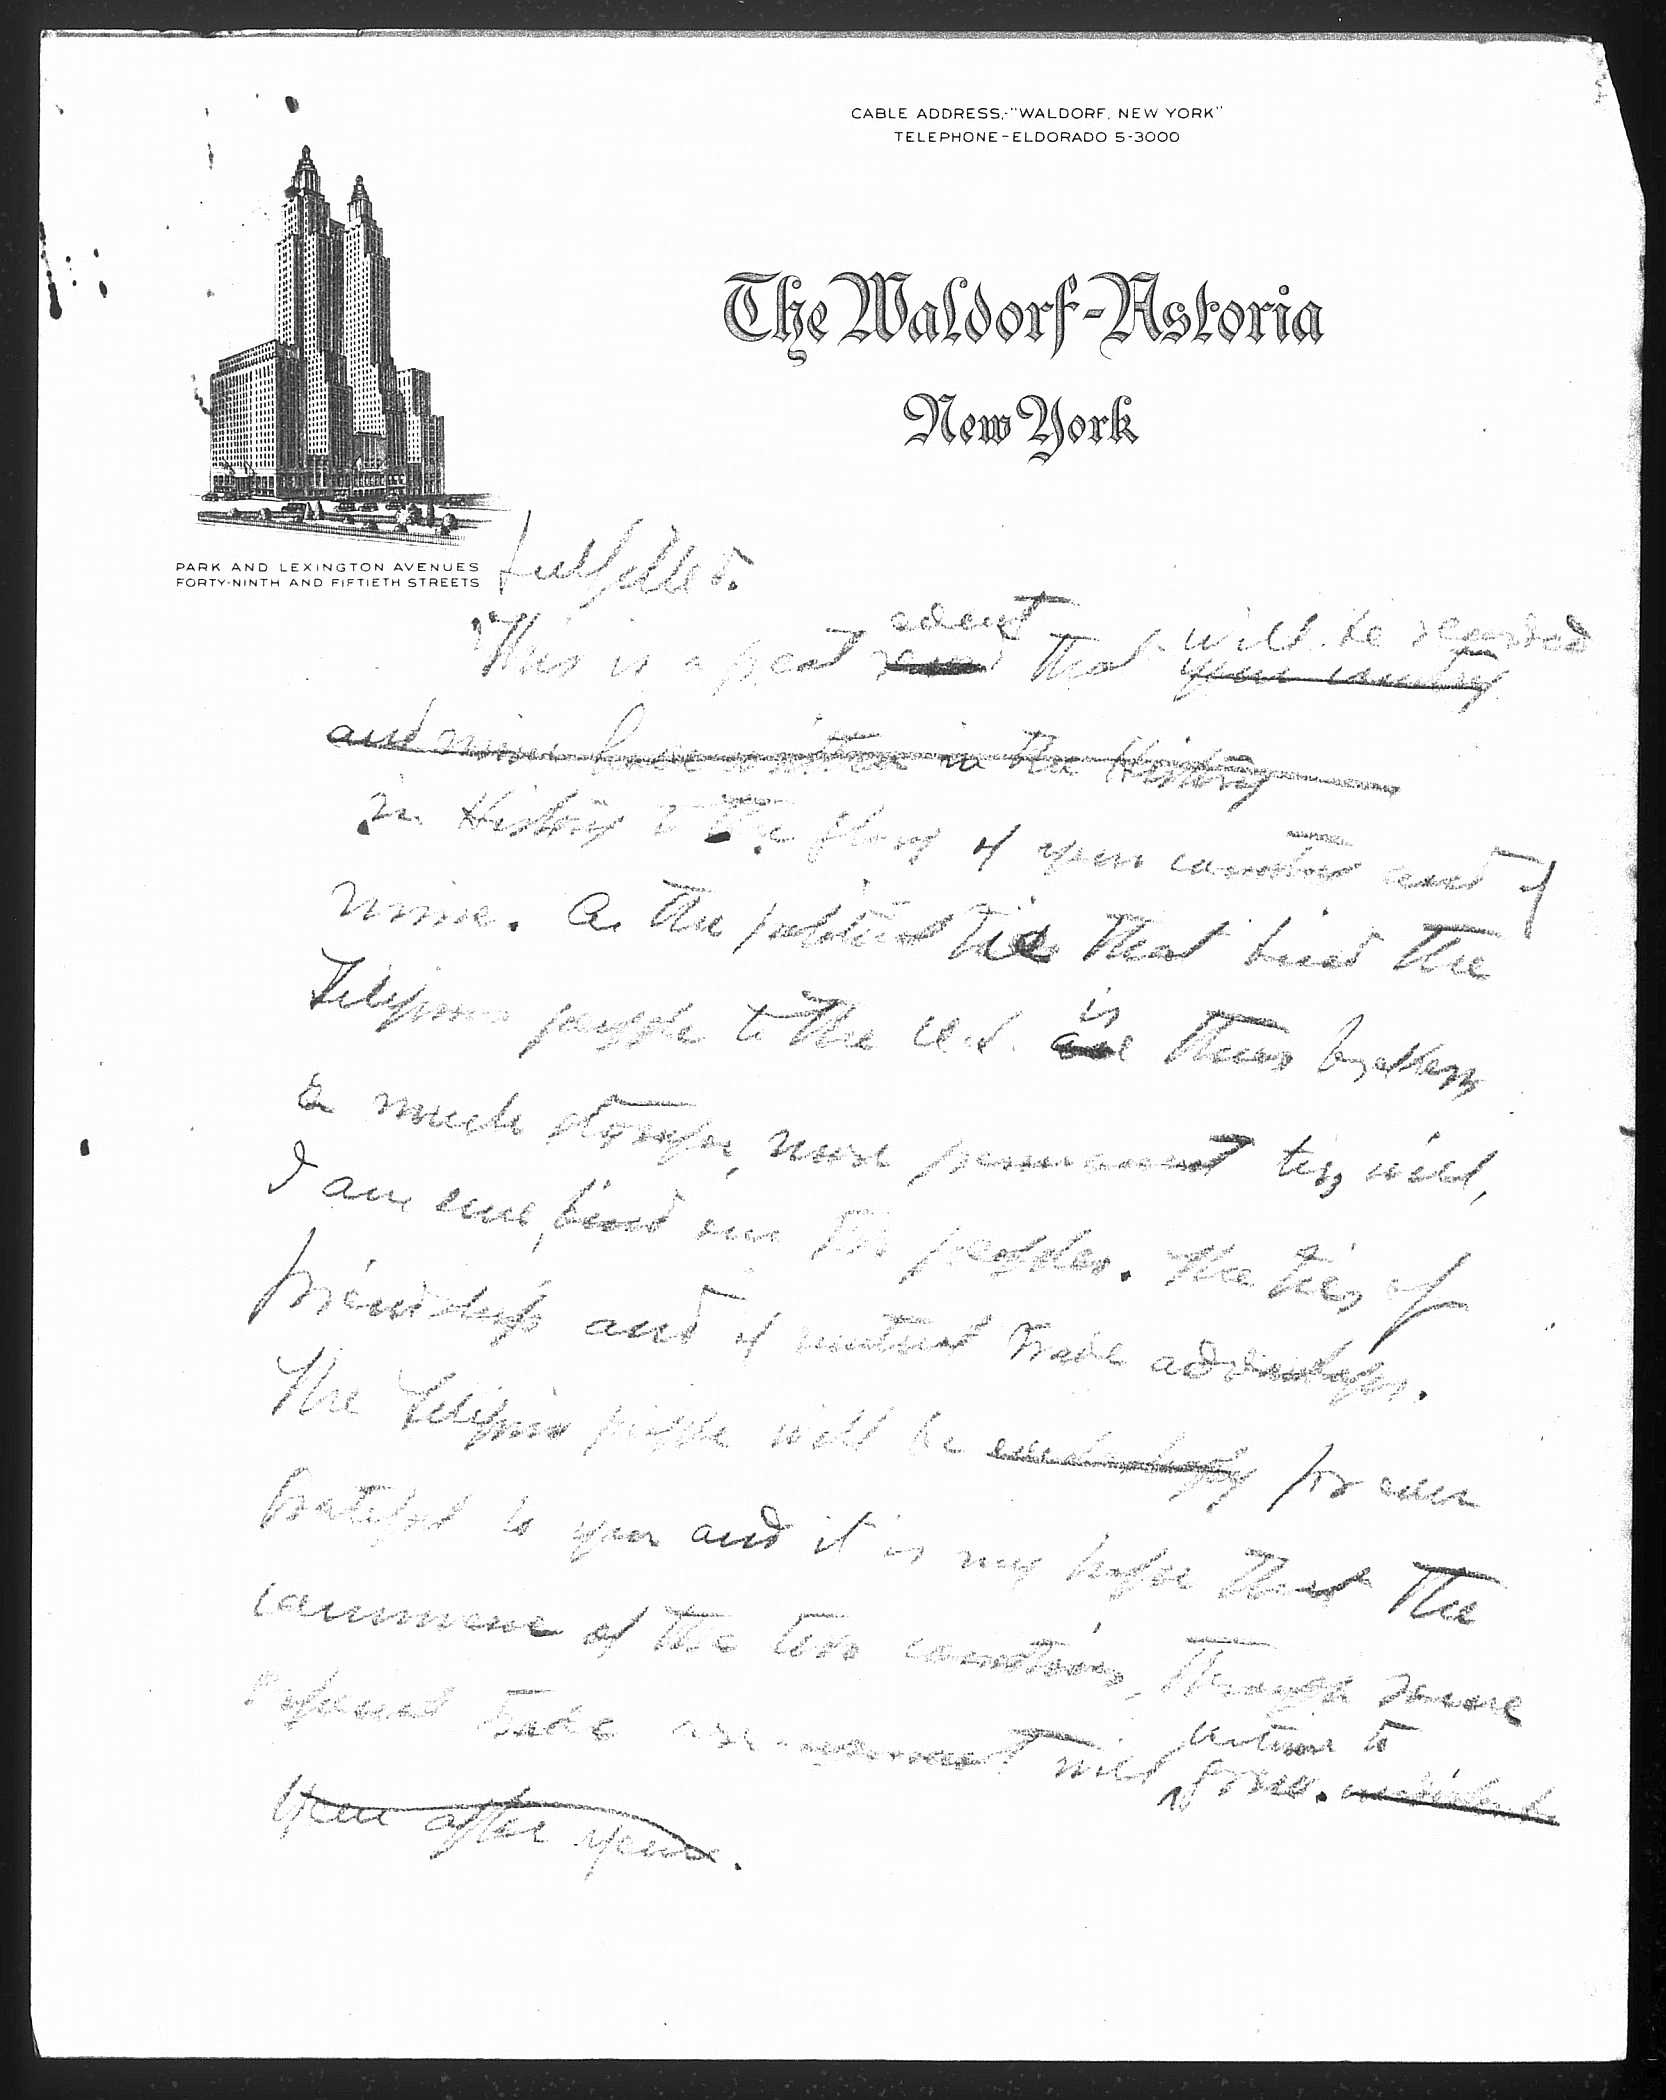 CABLE ADDRESS,-"WALDORF, NEW YORK"
TELEPHONE-ELDORADO 5-3000
The Waldorf-Astoria
New York
PARK AND LEXINGTON AVENUES
FORTY-NINTH AND FIFTIETH STREETS
fulfilled.
event will be recorded
This is a great that your country
and mine have written in the History
in History to the glory of your country and of
mine. As the political tie that bind the
is
Filipino people to the U.S. are thus broken
a much stronger, more permanent ties will,
I am sure, bind our two peoples. The ties of
friendship and of mutual trade advantages.
The Filipino people will be for ever
grateful to you and it is my hope that the
commerce of the two countries, through some
trade arrangement will grow.
to
year after year.